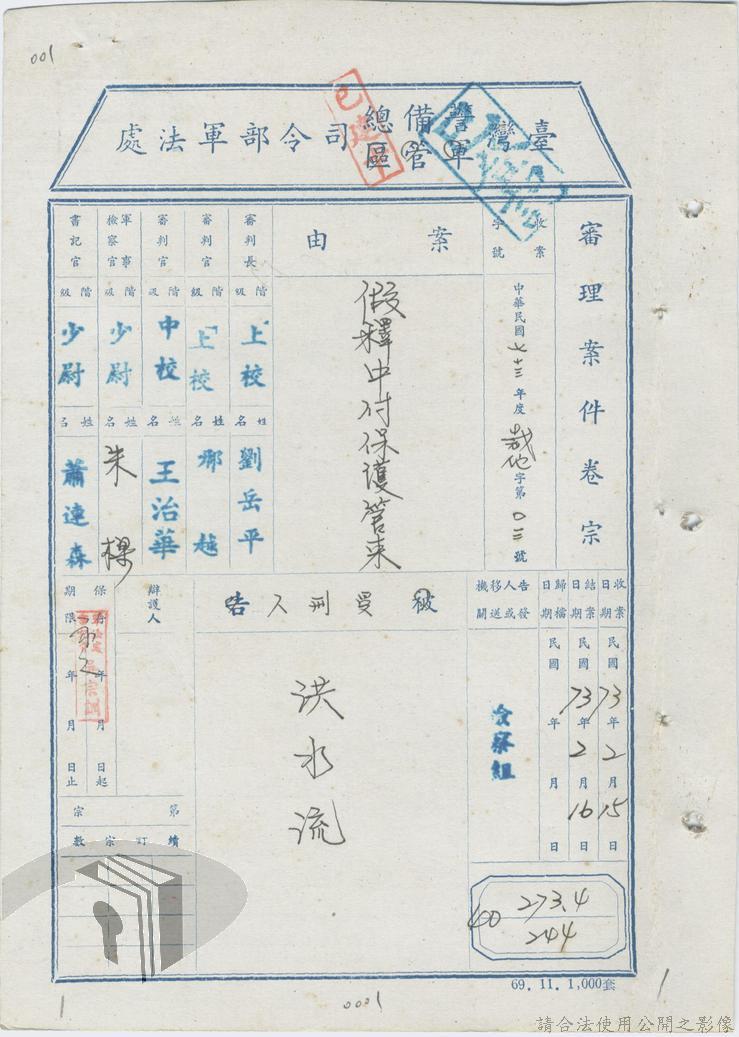 001
臺灣警備總司令部軍法處
軍管區
已建檔
審理案件卷宗
收案字號
中華民國七十三年度裁他字第0二三號
案由
假釋中付保護管束
審判長
階級
上校
姓名
劉岳平
審判官
階級
上校
姓名
鄭越
審判官
階級
中校
姓名
王治華
軍事檢察官
階級
少尉
姓名
朱樑
書記官
階級
少尉
姓名
蕭達森
收案日期
民國73年2月15日
結案日期
民國73年2月16日
歸檔日期
民國 年 月 日
告發人或移送機關
檢察組
被告
受刑人
洪水流
辯護人
保存期限
年 月 日起
年 月 日止
第 宗
續訂宗數
273.4
400
244
69.11.1,000套
0001
請合法使用公開之影像